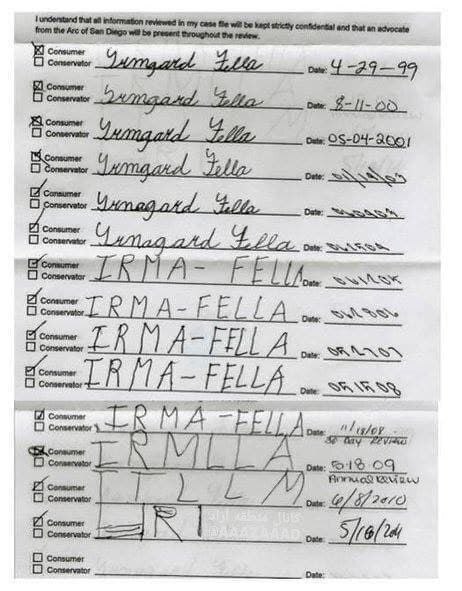 I understand that all information reviewed in my case file will be kept strictly confidential and that an advocate
from the Arc of San Diego will be present throughout the review.
Consumer
Conservator Irmgard Fella Date: 4-29-99
Consumer
Conservator Irmgard Fella Date: 8-11-00
Consumer
Conservator Irmgard Fella Date: 05-04-2001
Consumer
Conservator Irmgard Fella Date:
Consumer
Conservator Irmagard Fella Date:
Consumer
Conservator Irmagard Fella Date:
Consumer
Conservator IRMA- FELLA Date:
Consumer
Conservator IRMA-FELLA Date:
Consumer
Conservator IRMA-FELLA Date:
Consumer
Conservator IRMA-FELLA Date:
Consumer
Conservator IRMA-FELLA Date: 11/18/08
30 Day REVIEW
Consumer
Conservator IRMLLA Date: 5-18 09
Annual Review
Consumer
Conservator ITLLM Date: 6/8/2010
Consumer
Conservator RI Date:
Consumer
Conservator Date: